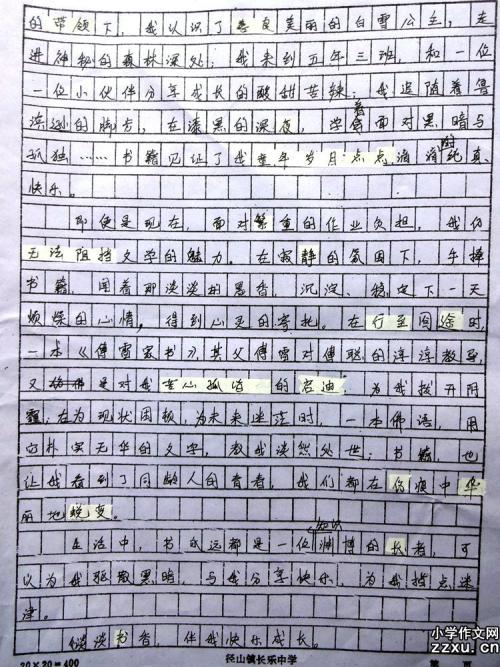 的带领下，我认识了善良美丽的白雪公主，走
进神秘的森林深处；我来到五年三班，和一位
一位小伙伴分享成长的酸甜苦辣；我追随着鲁
滨逊的脚步，在漆黑的深夜，学着面对黑暗与
孤独……书籍见证了我童年岁月点点滴滴的纯真、
快乐。
即使是现在，面对繁重的作业负担，我仍
无法阻挡文学的魅力。在寂静的氛围下，手捧
书籍，闻着那淡淡的墨香，沉淀、稳定下一天
烦燥的心情，得到心灵的寄托。在行至囧途时，
一本《傅雷家书》，其父傅雷对傅聪的谆谆教导，
又是对我苦心孤诣的启迪，为我拨开阴
霾；在为现状困顿，为未来迷茫时，一本佛语，用
它朴实无华的文字，教我淡然处世；书籍，也
让我看到了同龄人的青春，我们都在彷徨中华
丽地蜕变。
生活中，书永远都是一位知识渊博的长者，可
以为我驱散黑暗，与我分享快乐，为我指点迷
津。
淡淡书香，伴我快乐成长。
20×20=400 径山镇长乐中学 第 页
小学作文网
zzxu.cn